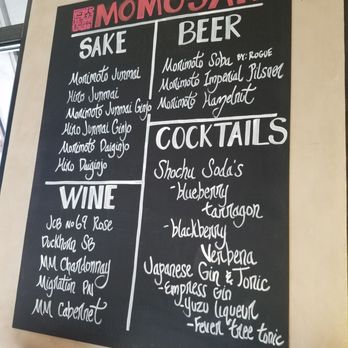 MOMOSAN
SAKE
Morimoto Junmai
Hiro Junmai
Morimoto Junmai Ginjo
Hiro Junmai Ginjo
Morimoto Daiginjo
Hiro Daiginjo
WINE
JCB No 69 Rose
Duckhorn SB
MM Chardonnay
Migration PN
MM Cabernet
BEER
Morimoto Soba BY: ROGUE
Morimoto Imperial Pilsner
Morimoto Hazelnut
COCKTAILS
Shochu Soda's
-blueberry
tarragon
-blackberry
Verbena
Japanese Gin & Tonic
-Empress Gin
-yuzu liqueur
-Fever tree tonic